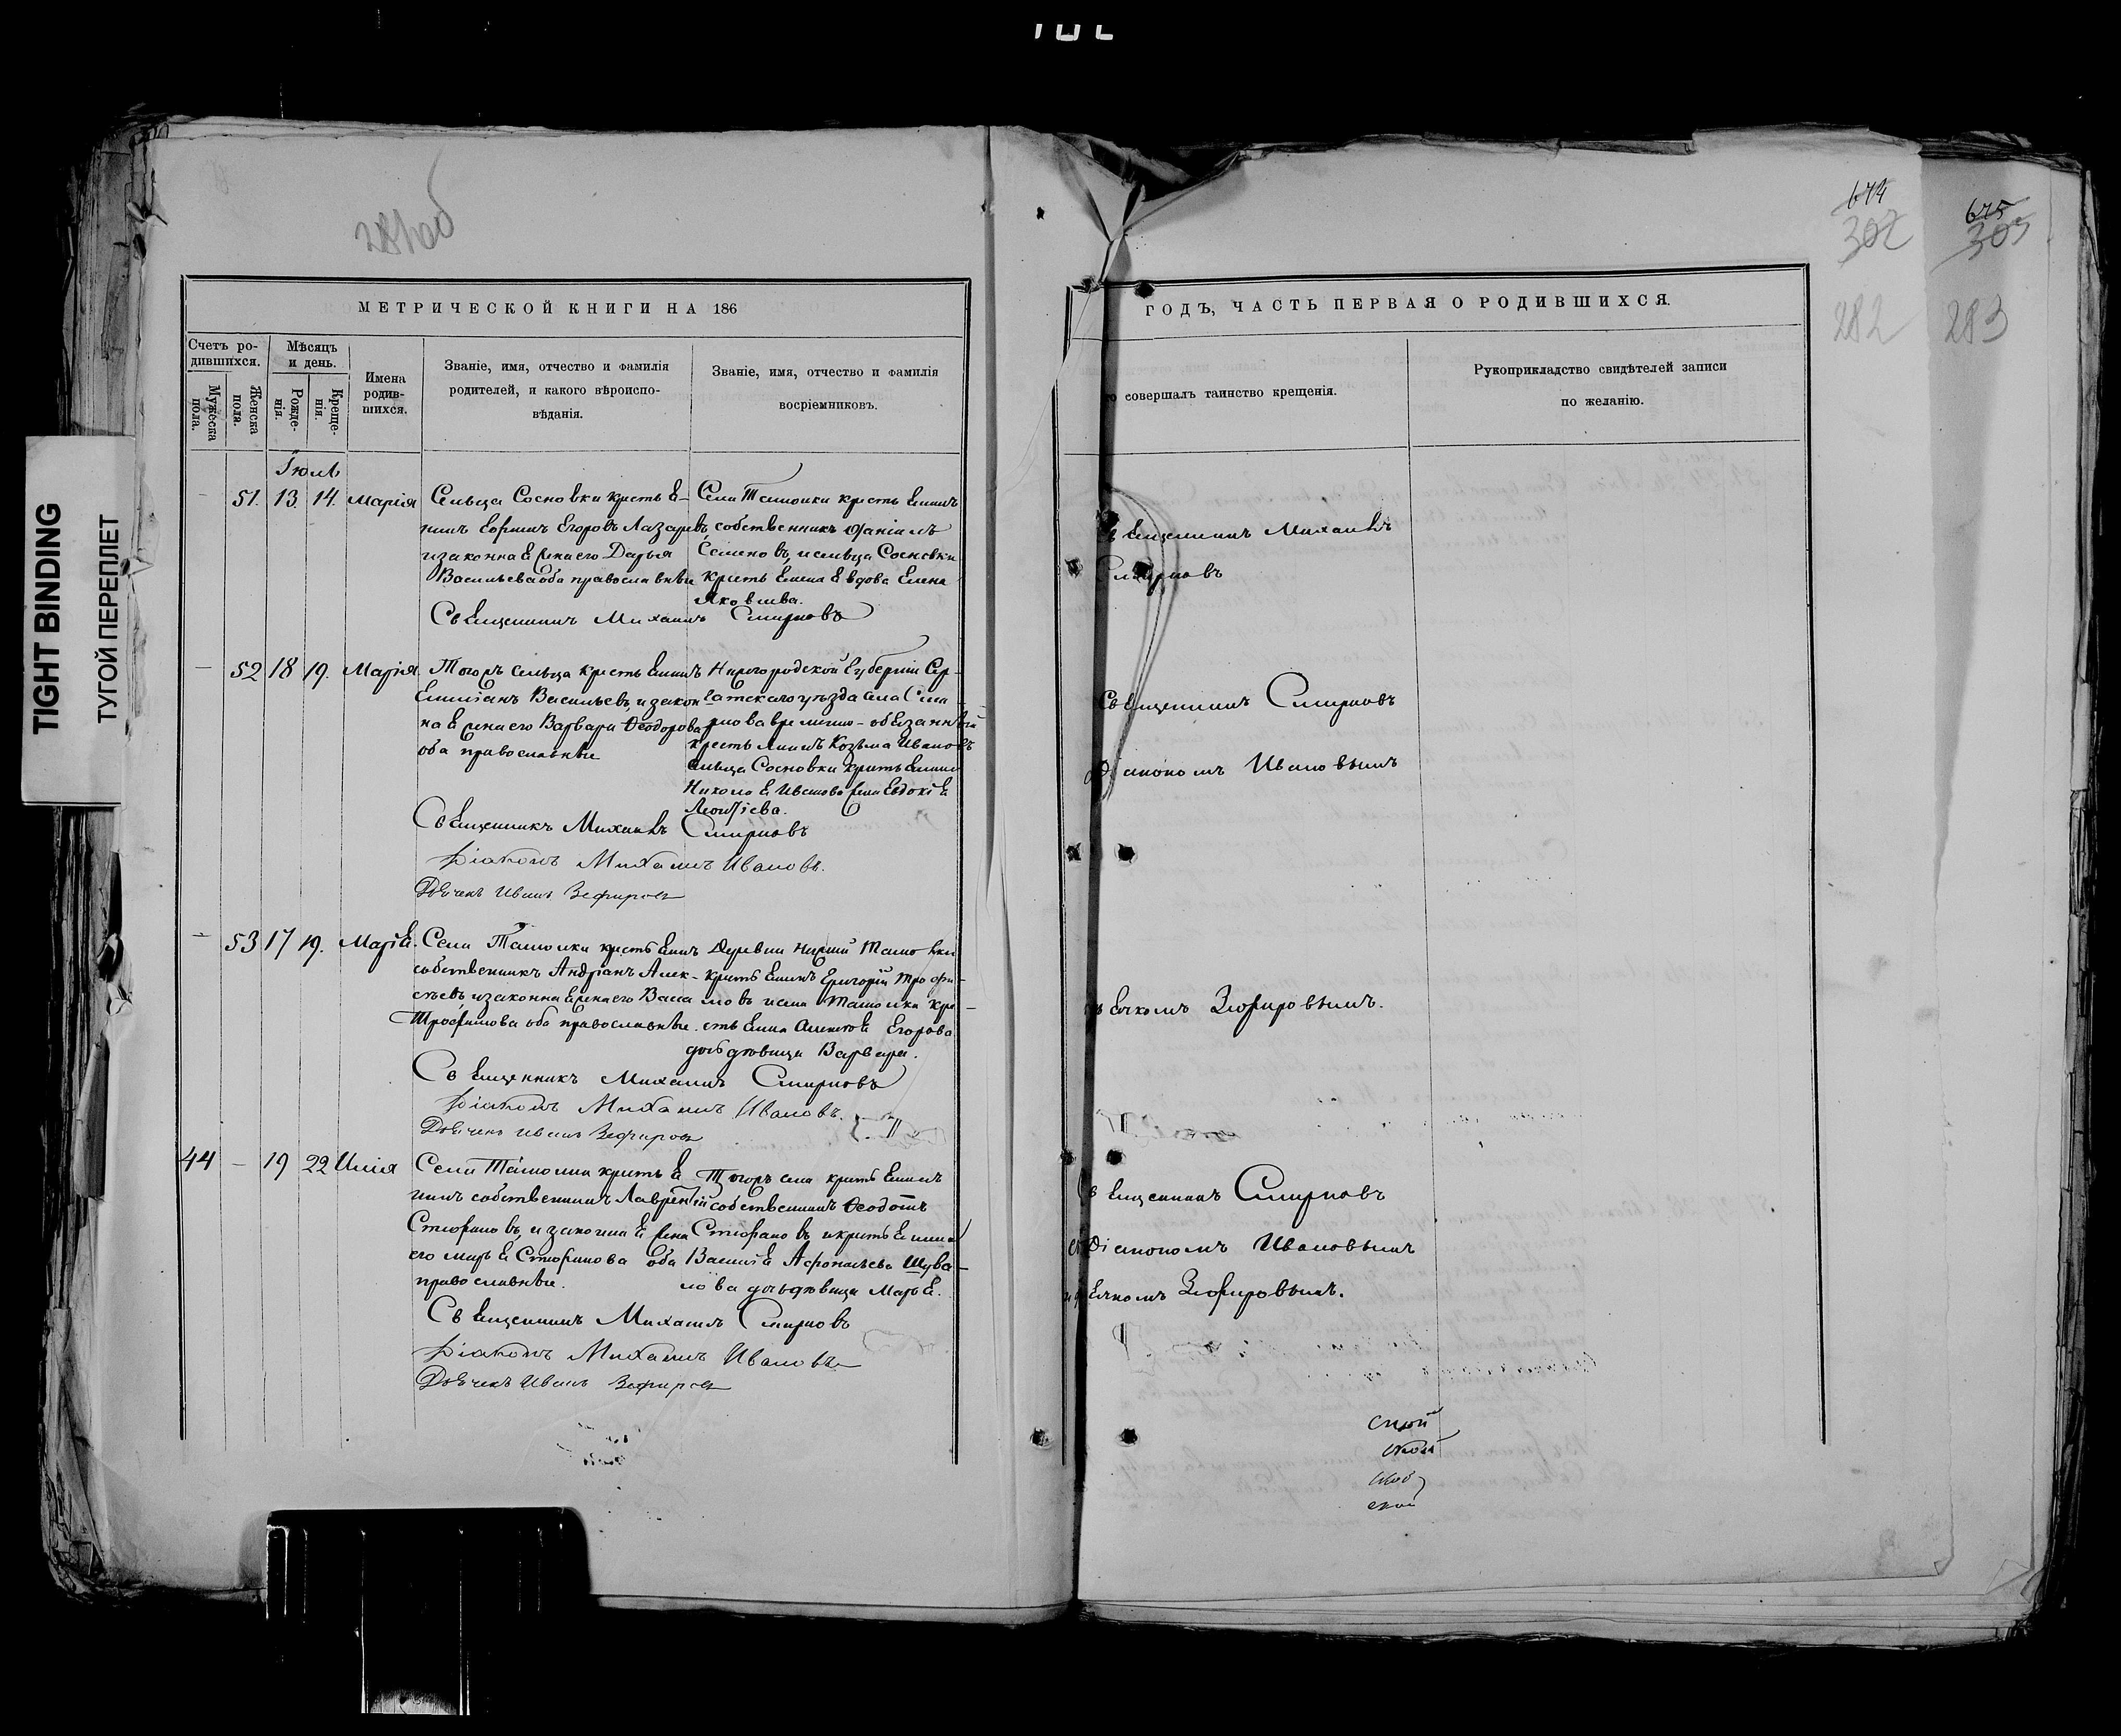 281об
674
302
675
303
282
283
TIGHT BINDING
ТУГОЙ ПЕРЕПЛЕТ
МЕТРИЧЕСКОЙ КНИГИ НА 186
Счетъ ро-
дившихся.
Мужеска
пола.
Женска
пола.
Мѣсяцъ
и день.
Рожде-
нія.
Креще-
нія.
Имена
родив-
шихся.
Званіе, имя, отчество и фамилія
родителей, и какого вѣроиспо-
вѣданія.
Званіе, имя, отчество и фамилія
воспріемниковъ.
Іюль
51. 13. 14. Марія
Сельца Сосновки кресть я-
нинъ Ефимъ Егоровъ Лазаревъ,
и законная жена его Дарья
Васильева оба православные
Села крестьянинъ
собственникъ
Семеновъ, и сельца Сосновки
крестьянская вдова Елена
Яковлева.
Священникъ Михаилъ Смирновъ
52 18 19. Марія.
Тогожъ сельца крестьянинъ
Емиліанъ Васильевъ, и закон
ная жена его Варвара Ѳеодорова
оба православные
Нижегородской Губерніи Сер-
гатскаго уѣзда села
временно-обязанный
крестьянинъ Козьма Ивановъ
сельца Сосновки крестьянина
Николая Иванова жена Евдокія
Леонтіева.
Священникъ Михаилъ Смирновъ
Діаконъ Михаилъ Ивановъ.
Дьячекъ Иванъ Зефировъ
53 17 19. Марія.
Села крестьянинъ
собственникъ Андріанъ Алек-
сѣевъ и законная жена его Васса
Трофимова оба православные.
Деревни
крестьянинъ Григорій Трофи-
мовъ и села кре-
стьянина Алексѣя Егорова
дочь дѣвица Варвара.
Священникъ Михаилъ Смирновъ
Діаконъ Михаилъ Ивановъ.
Дьячекъ Иванъ Зефировъ
44 - 19 22 Илія
Села крестья
нинъ собственникъ Лаврентій
Стефановъ, и законная жена
его Марья Стефанова оба
православные.
Тогожъ села крестьянинъ
собственникъ Ѳеодотъ
Стефановъ и крестьянина
Василія Афонасьева Шува-
лова дочь дѣвица Марья.
Священникъ Михаилъ Смирновъ
Діаконъ Михаилъ Ивановъ
Дьячекъ Иванъ Зефировъ
ГОДЪ, ЧАСТЬ ПЕРВАЯ О РОДИВШИХСЯ.
то совершалъ таинство крещенія.
Рукоприкладство свидѣтелей записи
по желанію.
Священникъ Михаилъ
Смирновъ
Священникъ Смирновъ
Діакономъ Ивановымъ
дьячкомъ Зефировымъ.
Священникъ Смирновъ
съ Діакономъ Ивановымъ
и дьячкомъ Зефировымъ.